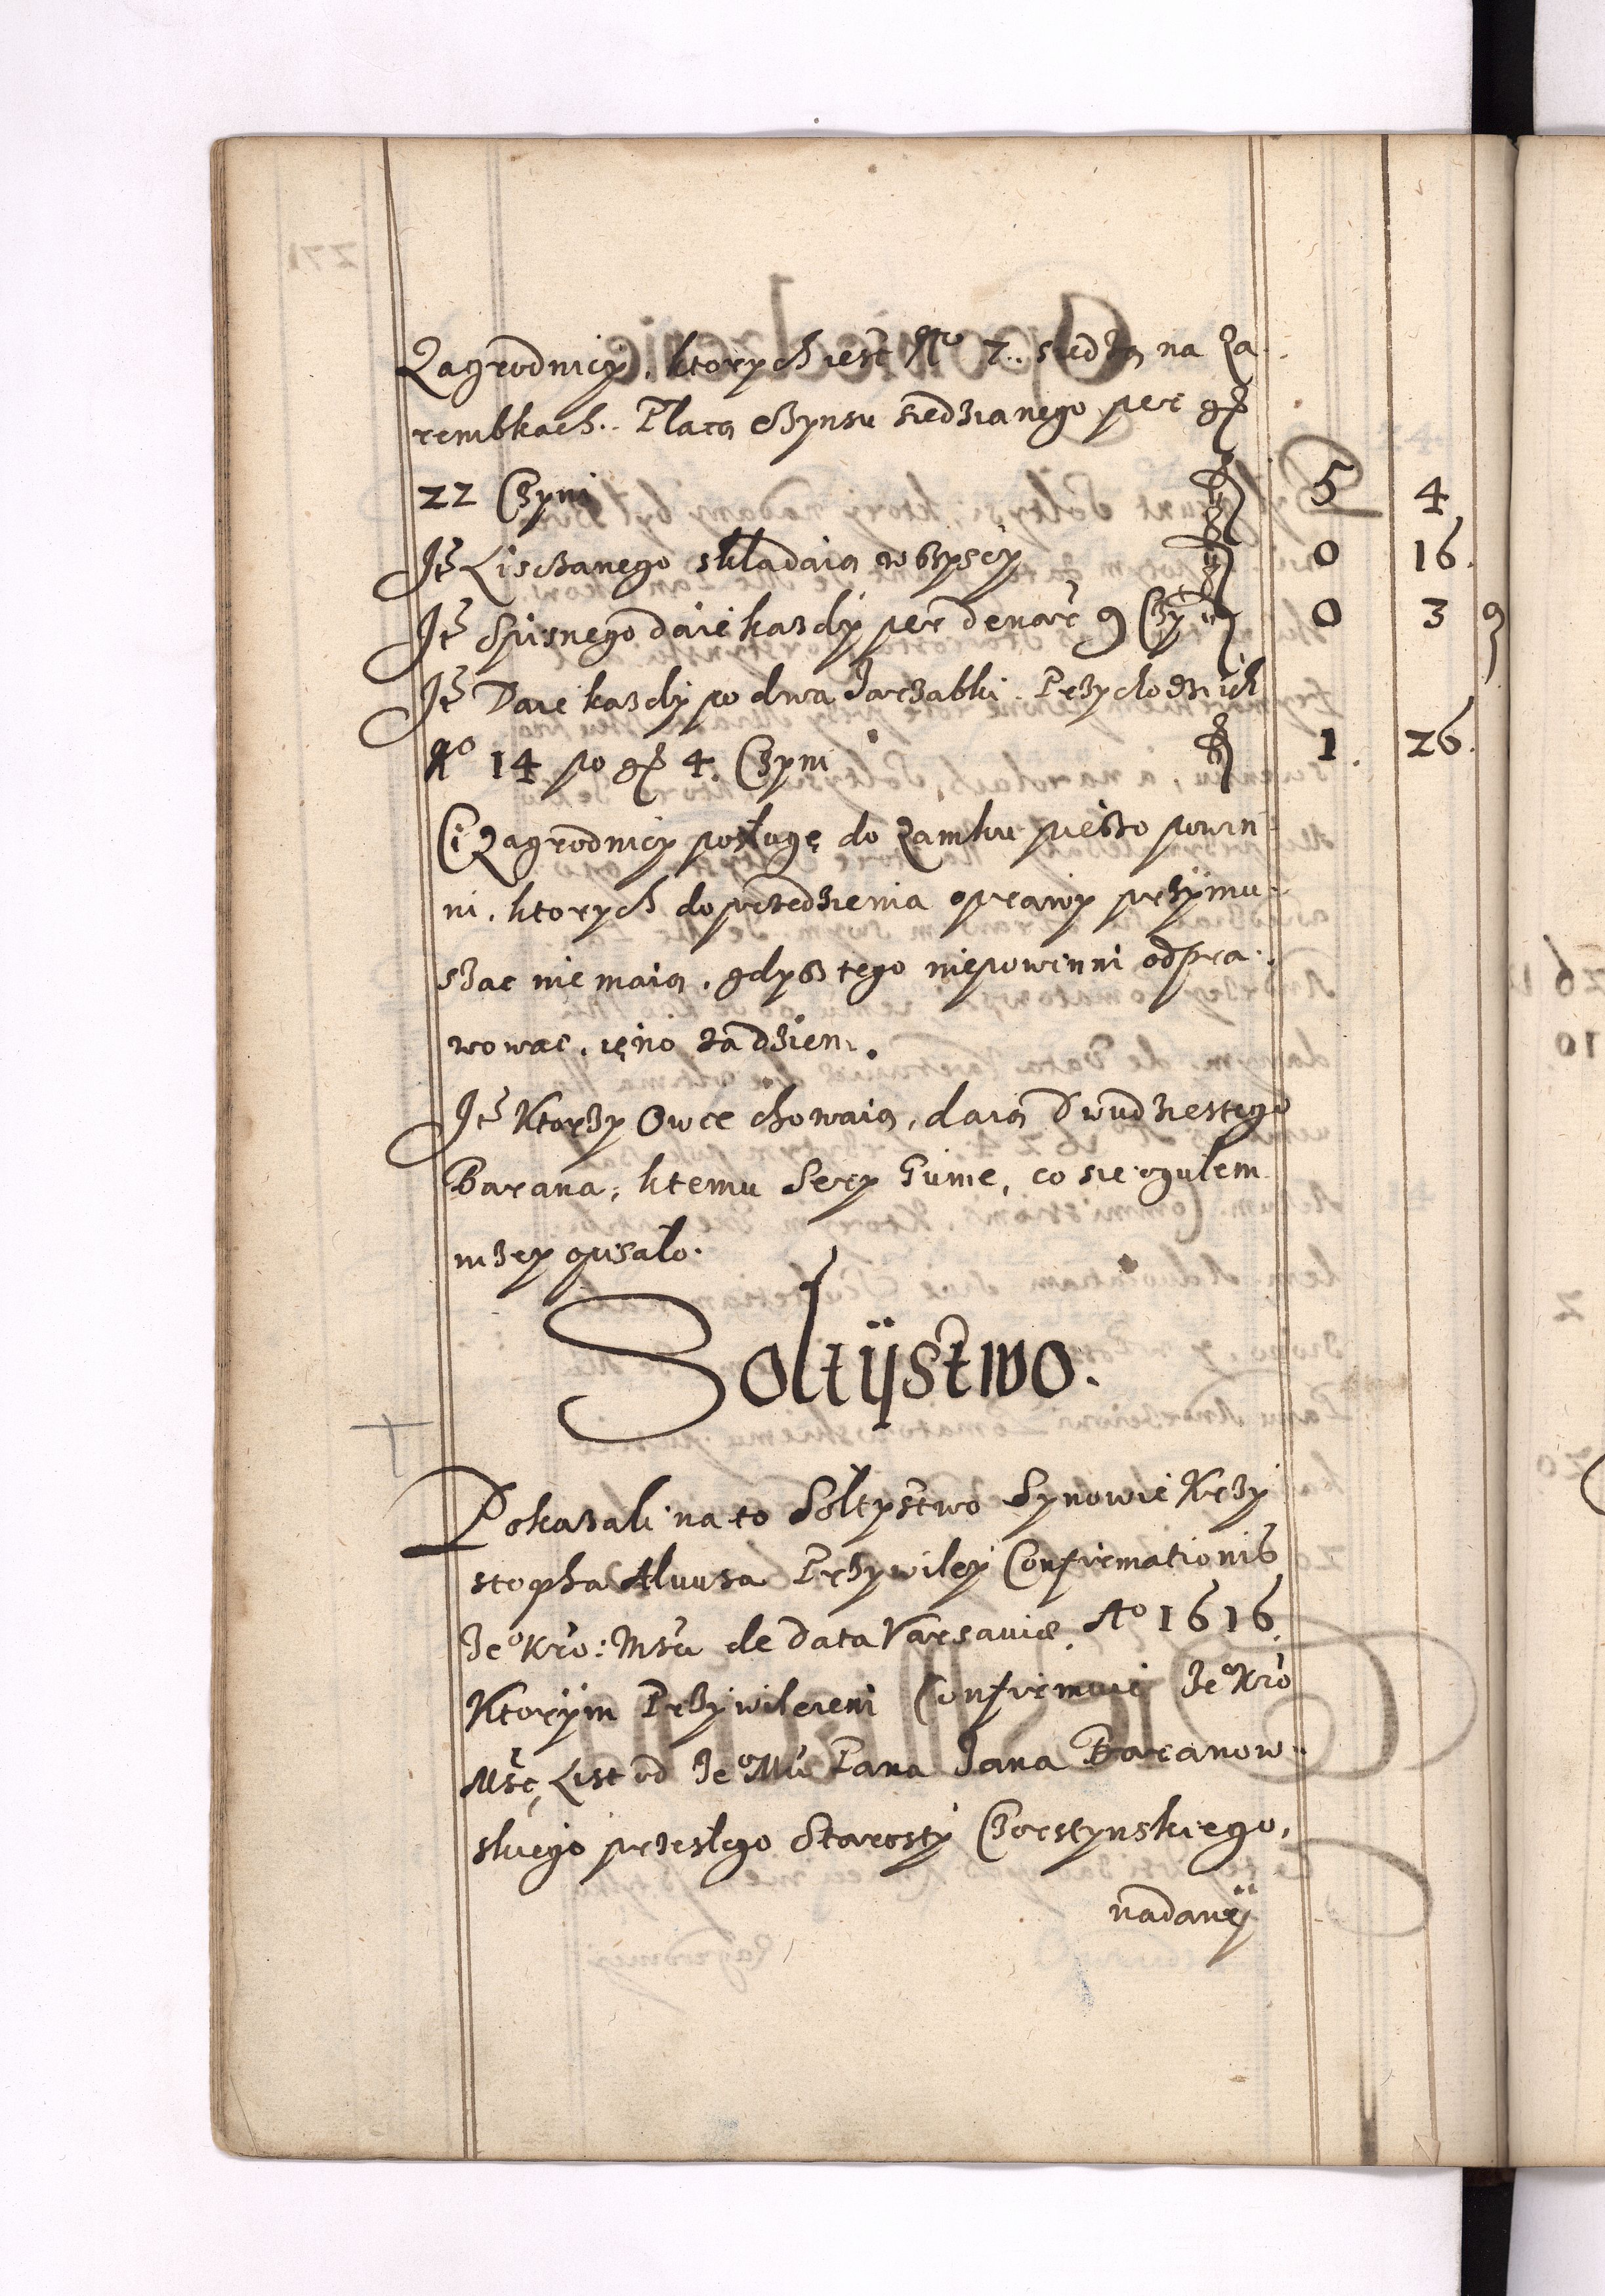 Zagrodnicy, ktorych iest No 7. siedzą na Za-
rembkach. Płacą czynsu siedzianego per gr
22 Czyni 5 4
Itē Lisczanego składaią wszyscy 0 16.
Itē Spisnego daie kazdy per denar 9 Czy 0 3 9
Itē Daie kazdy po dwa Jarząbki. Przychodzi ich
No 14 po gr 4. Czyni 1. 26.
Ci Zagrodnicy posługę do Zamku pieszo powin-
ni, ktorych do przedzienia oprawy przymu-
szac nie maią, gdysz tego niepowinni odpra-
wowac, ięno za dzien.
Itē Ktorzy Owce chowaią, daią Dwudziestego
Barana, ktemu Sery Gunie, co sie ogułem
nizey opisało.
Soltÿstwo.
Pokazali na to Soltystwo Synowie Krzy
stopha Przywiley Confirmationis
Jeo Kro: Mści de data Varsaviæ Ao 1616.
Ktorym Przywileiem Confirmuie Jeo Kro
Mśc, List od Jeo Mci Pana Jana Baranow-
skiego przeszłego Starosty Czorstynskiego,
nadany